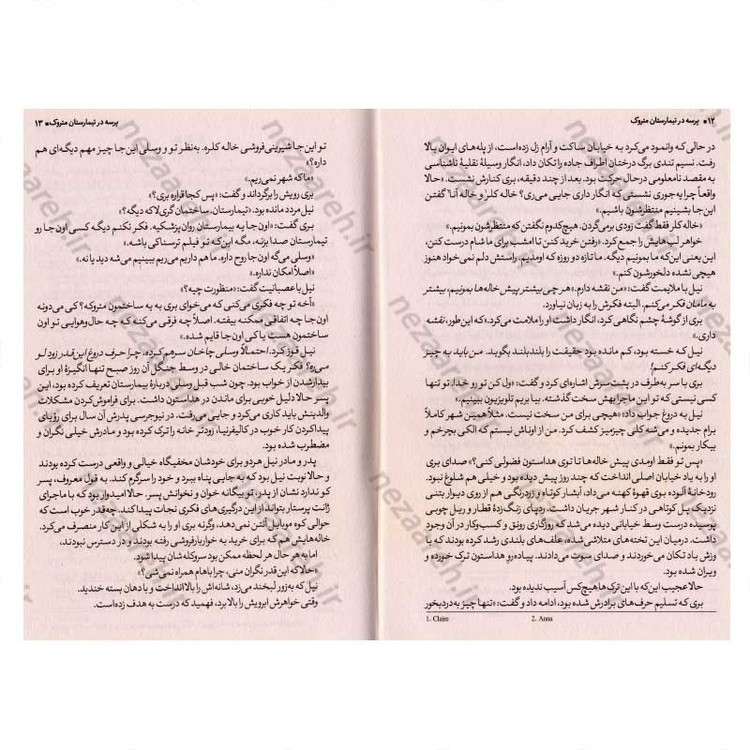 ۱۲ ■ پرسه در تیمارستان متروک
در حالی که وانمود می‌کرد به خیابان ساکت و آرام زل زده‌است، از پله‌های ایوان بالا
رفت. نسیم تندی برگ درختان اطراف جاده را تکان داد، انگار وسیلهٔ نقلیهٔ ناشناسی
به مقصد نامعلومی درحال حرکت بود. بعد از چند دقیقه، بری کنارش نشست. «حالا
واقعاً چرا یه‌جوری نشستی که انگار داری جایی می‌ری؟ خاله کلر و خاله آنا گفتن
این‌جا بشینیم منتظرشون باشیم.»
«خاله کلر فقط گفت زودی برمی‌گردن. هیچ‌کدوم نگفتن که منتظرشون بمونیم.»
خواهر لب‌هایش را جمع کرد. «رفتن خرید کنن تا امشب برای ما شام درست کنن،
این یعنی این‌که ما بمونیم دیگه. ما تازه دو روزه که اومدیم. راستش دلم نمی‌خواد هنوز
هیچی نشده دلخورشون کنم.»
نیل با ملایمت گفت: «من نقشه دارم.» هر چی بیشتر پیش خاله‌ها بمونیم، بیشتر
به مامان فکر می‌کنم. البته فکرش را به زبان نیاورد.
بری از گوشهٔ چشم نگاهی کرد، انگار داشت او را ملامت می‌کرد. «که این طور، نقشه
داری.»
نیل که خسته بود، کم مانده بود حقیقت را بلندبلند بگوید. من باید به چیز
دیگه‌ای فکر کنم!
بری با سر به‌طرف در پشت سرش اشاره‌ای کرد و گفت: «ول کن تو رو خدا، تو تنها
کسی نیستی که تو این ماجراهش سخت گذشته. بیا بریم تلویزیون ببینیم.»
نیل به دروغ جواب داد: «هیچی برای من سخت نیست. مثلاً همین شهر کاملاً
برام جدیده و می‌شه کلی چیزمیز کشف کرد. من از اوناش نیستم که الکی بچرخم و
بیکار بمونم.»
«پس تو فقط اومدی پیش خاله‌ها تا توی هداستون فضولی کنی؟» صدای بری
او را به یاد خیابان اصلی انداخت که چند روز پیش دیده بود و خیلی هم شلوغ نبود.
رودخانهٔ آلوده بری قهوهٔ کهنه می‌داد، آبشار کوتاه و زودرنگی هم از روی دیوار بتنی
نزدیک پل کوتاهی در کنار شهر جریان داشت. ردپای زنگ‌زدهٔ قطار و ریل چوبی
پوسیده درست وسط خیابانی دیده می‌شد که روزگاری رونق و کسب‌وکار در آن وجود
داشت. درمیان این تخته‌های متلاشی شده، علف‌های بلندی رشد کرده بودند که با
وزش باد تکان می‌خوردند و صدای سوت می‌دادند. پیاده‌رو هداستون ترک خورده و
ویران شده بود.
حالا عجیب این‌که با این ترک‌ها هیچ‌کس آسیب ندیده بود.
بری که تسلیم حرف‌های برادرش شده بود، ادامه داد و گفت: «تنها چیز به‌دردبخور
1. Claire
2. Anna
پرسه در تیمارستان متروک ■ ۱۳
تو این‌جا شیرینی‌فروشی خاله کلره. به‌نظر تو و وسلی این‌جا چیز مهم دیگه‌ای هم
داره؟»
«ما که شهر نمی‌ریم.»
بری رویش را برگرداند و گفت: «پس کجا قراره بری؟»
نیل مردد مانده بود. «تیمارستان. ساختمان گری‌لاک دیگه؟»
بری گفت: «اون‌جا یه بیمارستان روان‌پزشکیه. فکر نکنم دیگه کسی اون‌جا رو
تیمارستان صدا بزنه، مگه این‌که تو فیلم ترسناکی باشه.»
«وسلی می‌گه اون‌جا روح داره. ما هم داریم می‌ریم ببینیم می‌شه دید یا نه.»
«اصلاً امکان نداره.»
نیل با عصبانیت گفت: «منظورت چیه؟»
«آخه تو چه فکری می‌کنی که می‌خوای بری به یه ساختمون متروکه؟ کی می‌دونه
اون‌جا چه اتفاقی ممکنه بیفته. اصلاً چه فرقی می‌کنه که چه حال‌وهوایی تو اون
ساختمون هست یا کی اون‌جا قایم شده.»
نیل قوز کرد. احتمالاً وسلی چاخان سرهم کرده. چرا حرف دروغ این‌قدر زود لو
می‌ره؟ فکر یک ساختمان خالی در وسط جنگل آن روز صبح تنها انگیزهٔ او برای
بیدارشدن از خواب بود. چون شب قبل وسلی دربارهٔ بیمارستان تعریف کرده بود، این
پسر حالا دلیل خوبی برای ماندن در هداستون داشت. برای فراموش‌کردن مشکلات
والدینش باید کاری می‌کرد و جایی می‌رفت. در نیوجرسی پدرش آن سال برای رؤیای
پیداکردن کار خوب در کالیفرنیا، زودتر خانه را ترک کرده بود و مادرش خیلی نگران و
مضطرب شده بود.
پدر و مادر نیل هردو برای خودشان مخفیگاه خیالی و واقعی درست کرده بودند
و حالا نوبت نیل بود که به جایی پناه ببرد و خود را سرگرم کند. به قول معروف، پسر
کو ندارد نشان از پدر، تو بیگانه خوان و نخوانش پسر. حالا امیدوار بود که با ماجرای
ژانت پرستار بتواند از این درگیری‌های فکری نجات پیدا کند. چه‌قدر خوب است که
حوالی کوه موبایل آنتن نمی‌دهد، وگرنه بری او را به شکلی از این کار منصرف می‌کرد.
خاله‌هایش هم که برای خرید به خواربارفروشی رفته بودند و در دسترس نبودند،
اما به هر حال هر لحظه ممکن بود سروکله‌شان پیدا شود.
«حالا که این قدر نگران منی، چرا باهام همراه نمی‌شی؟»
نیل که به‌زور لبخند می‌زد، شانه‌اش را بالا انداخت و با دهان بسته خندید.
وقتی خواهرش ابرویش را بالا برد، فهمید که درست به هدف زده‌است.
nezaareh.ir